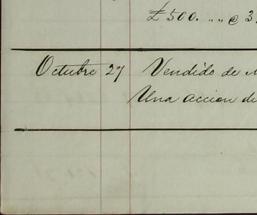 £ 500. „ „ @ 3
Octubre 27 Vendido de
Una accion de